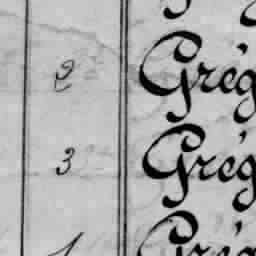 2 Grég
3 Grég
Grég